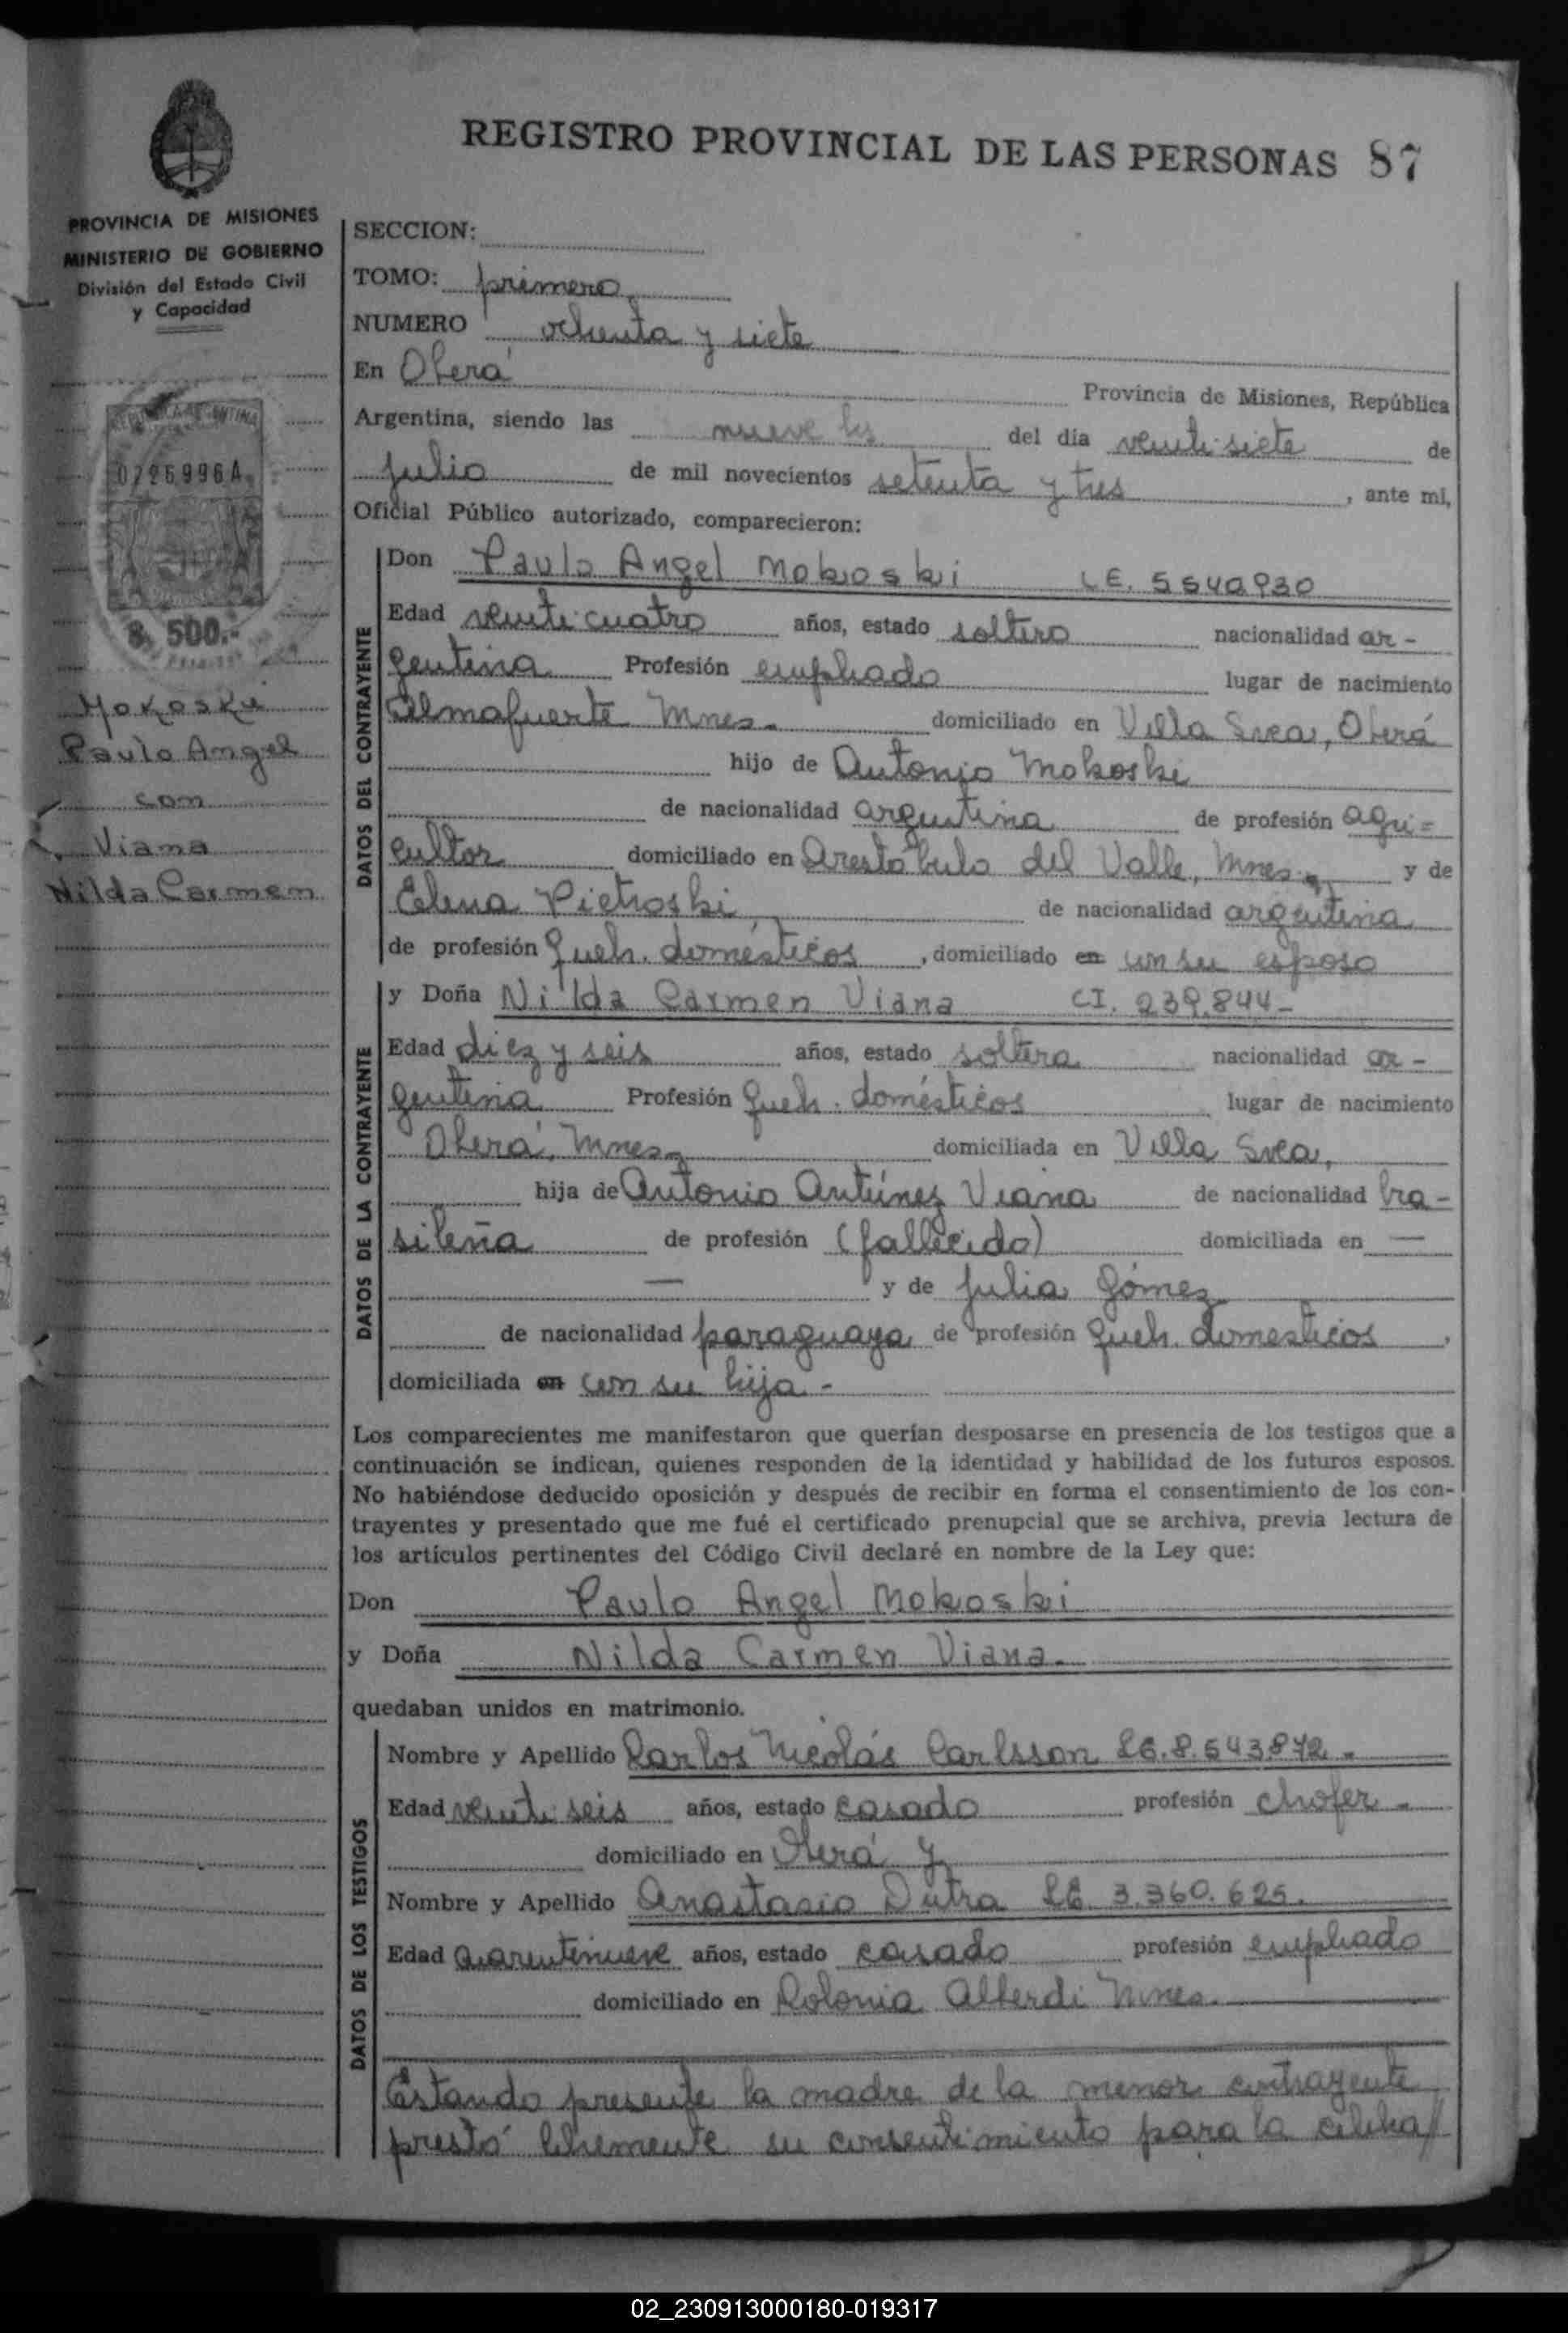 REGISTRO PROVINCIAL DE LAS PERSONAS 87
PROVINCIA DE MISIONES
MINISTERIO DE GOBIERNO
División del Estado Civil
y Capacidad
REPUBLICA ARGENTINA
0226996A
$ 500.-
Mokoski
Paulo Angel
con
Viana
Nilda Carmen
SECCION:
TOMO: primero
NUMERO ochenta y siete
En Oberá Provincia de Misiones, República
Argentina, siendo las nueve hs del día veinti siete de
julio de mil novecientos setenta y tres, ante mi,
Oficial Público autorizado, comparecieron:
DATOS DEL CONTRAYENTE
Don Paulo Angel Mokoski LE. 5540930
Edad veinte cuatro años, estado soltero nacionalidad ar-
gentina Profesión empleado lugar de nacimiento
Almafuerte Mnes. domiciliado en Villa Svea, Oberá
hijo de Antonio Mokoski
de nacionalidad argentina de profesión agri=
cultor domiciliado en Arestóbulo del Valle, Mnes. y de
Elena Pietroski de nacionalidad argentina
de profesión Queh. domésticos, domiciliado en con su esposo
DATOS DE LA CONTRAYENTE
y Doña Nilda Carmen Viana CI. 239.844-
Edad diez y seis años, estado soltera nacionalidad ar-
gentina Profesión Queh. domésticos lugar de nacimiento
Oberá, Mnes. domiciliada en Villa Svea,
hija de Antonio Antúnez Viana de nacionalidad bra-
sileña de profesión (fallecido) domiciliada en —
— y de Julia Gómez
de nacionalidad paraguaya de profesión Queh. domesticos,
domiciliada en con su hija -
Los comparecientes me manifestaron que querían desposarse en presencia de los testigos que a
continuación se indican, quienes responden de la identidad y habilidad de los futuros esposos.
No habiéndose deducido oposición y después de recibir en forma el consentimiento de los con-
trayentes y presentado que me fué el certificado prenupcial que se archiva, previa lectura de
los artículos pertinentes del Código Civil declaré en nombre de la Ley que:
Don Paulo Angel Mokoski
y Doña Nilda Carmen Viana.
quedaban unidos en matrimonio.
DATOS DE LOS TESTIGOS
Nombre y Apellido Carlos Nicolás Carlsson LE. 8.543.872.
Edad veinti seis años, estado casado profesión chofer.
domiciliado en Oberá y
Nombre y Apellido Anastasio Dutra LE 3.360.625.
Edad cuarentinueve años, estado casado profesión empleado
domiciliado en Colonia Alberdi Mnes.
Estando presente la madre de la menor contrayente
prestó libremente su consentimiento para la celebra//
02_230913000180-019317